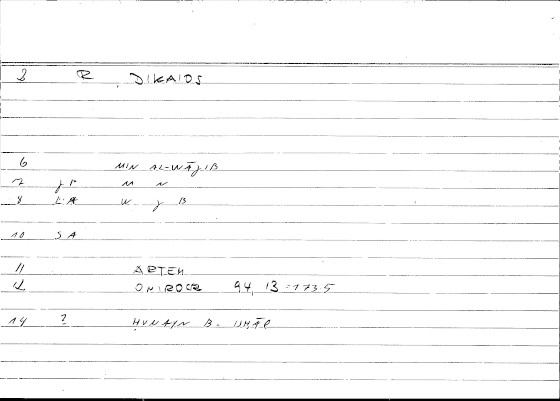 2 R DIKAIOS
6 MIN AL-WĀǧIB
7 ǧP M N
8 ṬA W ǧ B
10 SA
11 ARTEM
12 ONIROCR 94, 13 = 173.5
14 ? ḤUNAIN B. ISḤĀQ